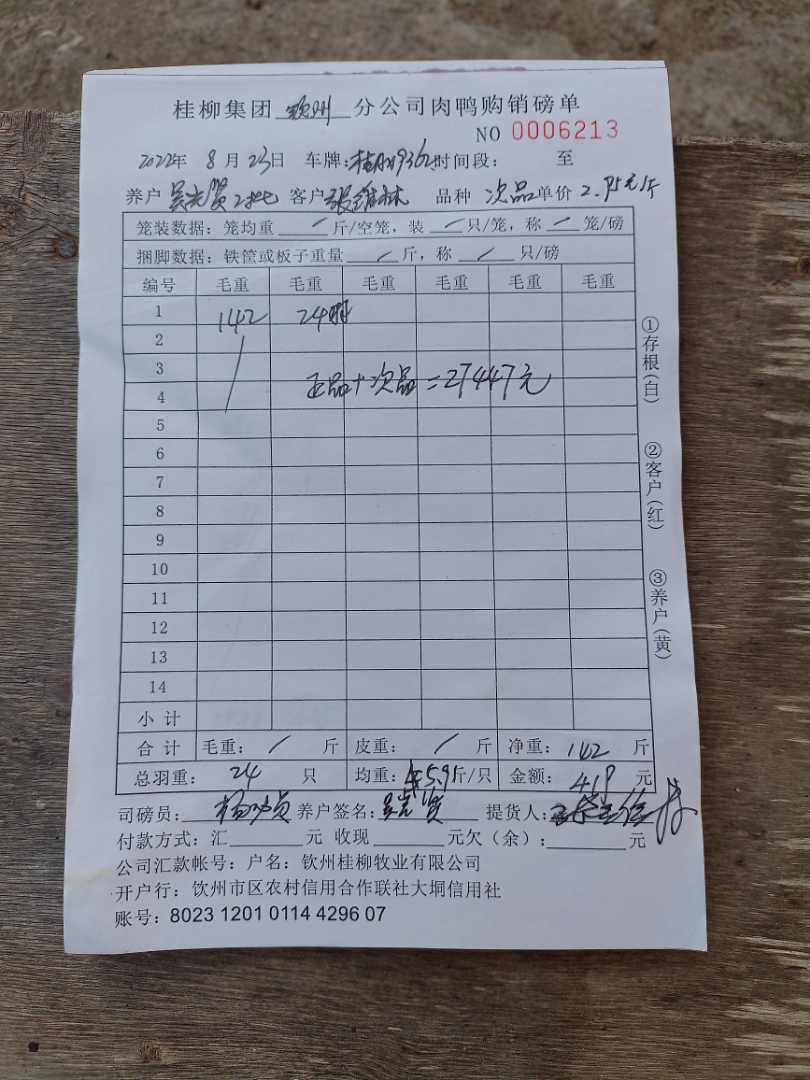 桂柳集团 钦州 分公司肉鸭购销磅单
NO 0006213
2022年 8月23日 车牌: 时间段: 至
养户 客户 张维林 品种 次品 单价 2.95元/斤
笼装数据：笼均重 / 斤/空笼，装 / 只/笼，称 / 笼/磅
捆脚数据：铁筐或板子重量 / 斤，称 / 只/磅
编号 毛重 毛重 毛重 毛重 毛重 毛重
1 142 24
2
3
4 正品+次品=27447元
5
6
7
8
9
10
11
12
13
14
小计
合计 毛重： / 斤 皮重： / 斤 净重： 142 斤
总羽重： 24 只 均重： 5.91斤/只 金额： 419 元
司磅员： 养户签名： 提货人：
付款方式：汇 元 收现 元欠（余）： 元
公司汇款帐号：户名：钦州桂柳牧业有限公司
开户行：饮州市区农村信用合作联社大垌信用社
账号：8023 1201 0114 4296 07
①存根(白)
②客户(红)
③养户(黄)